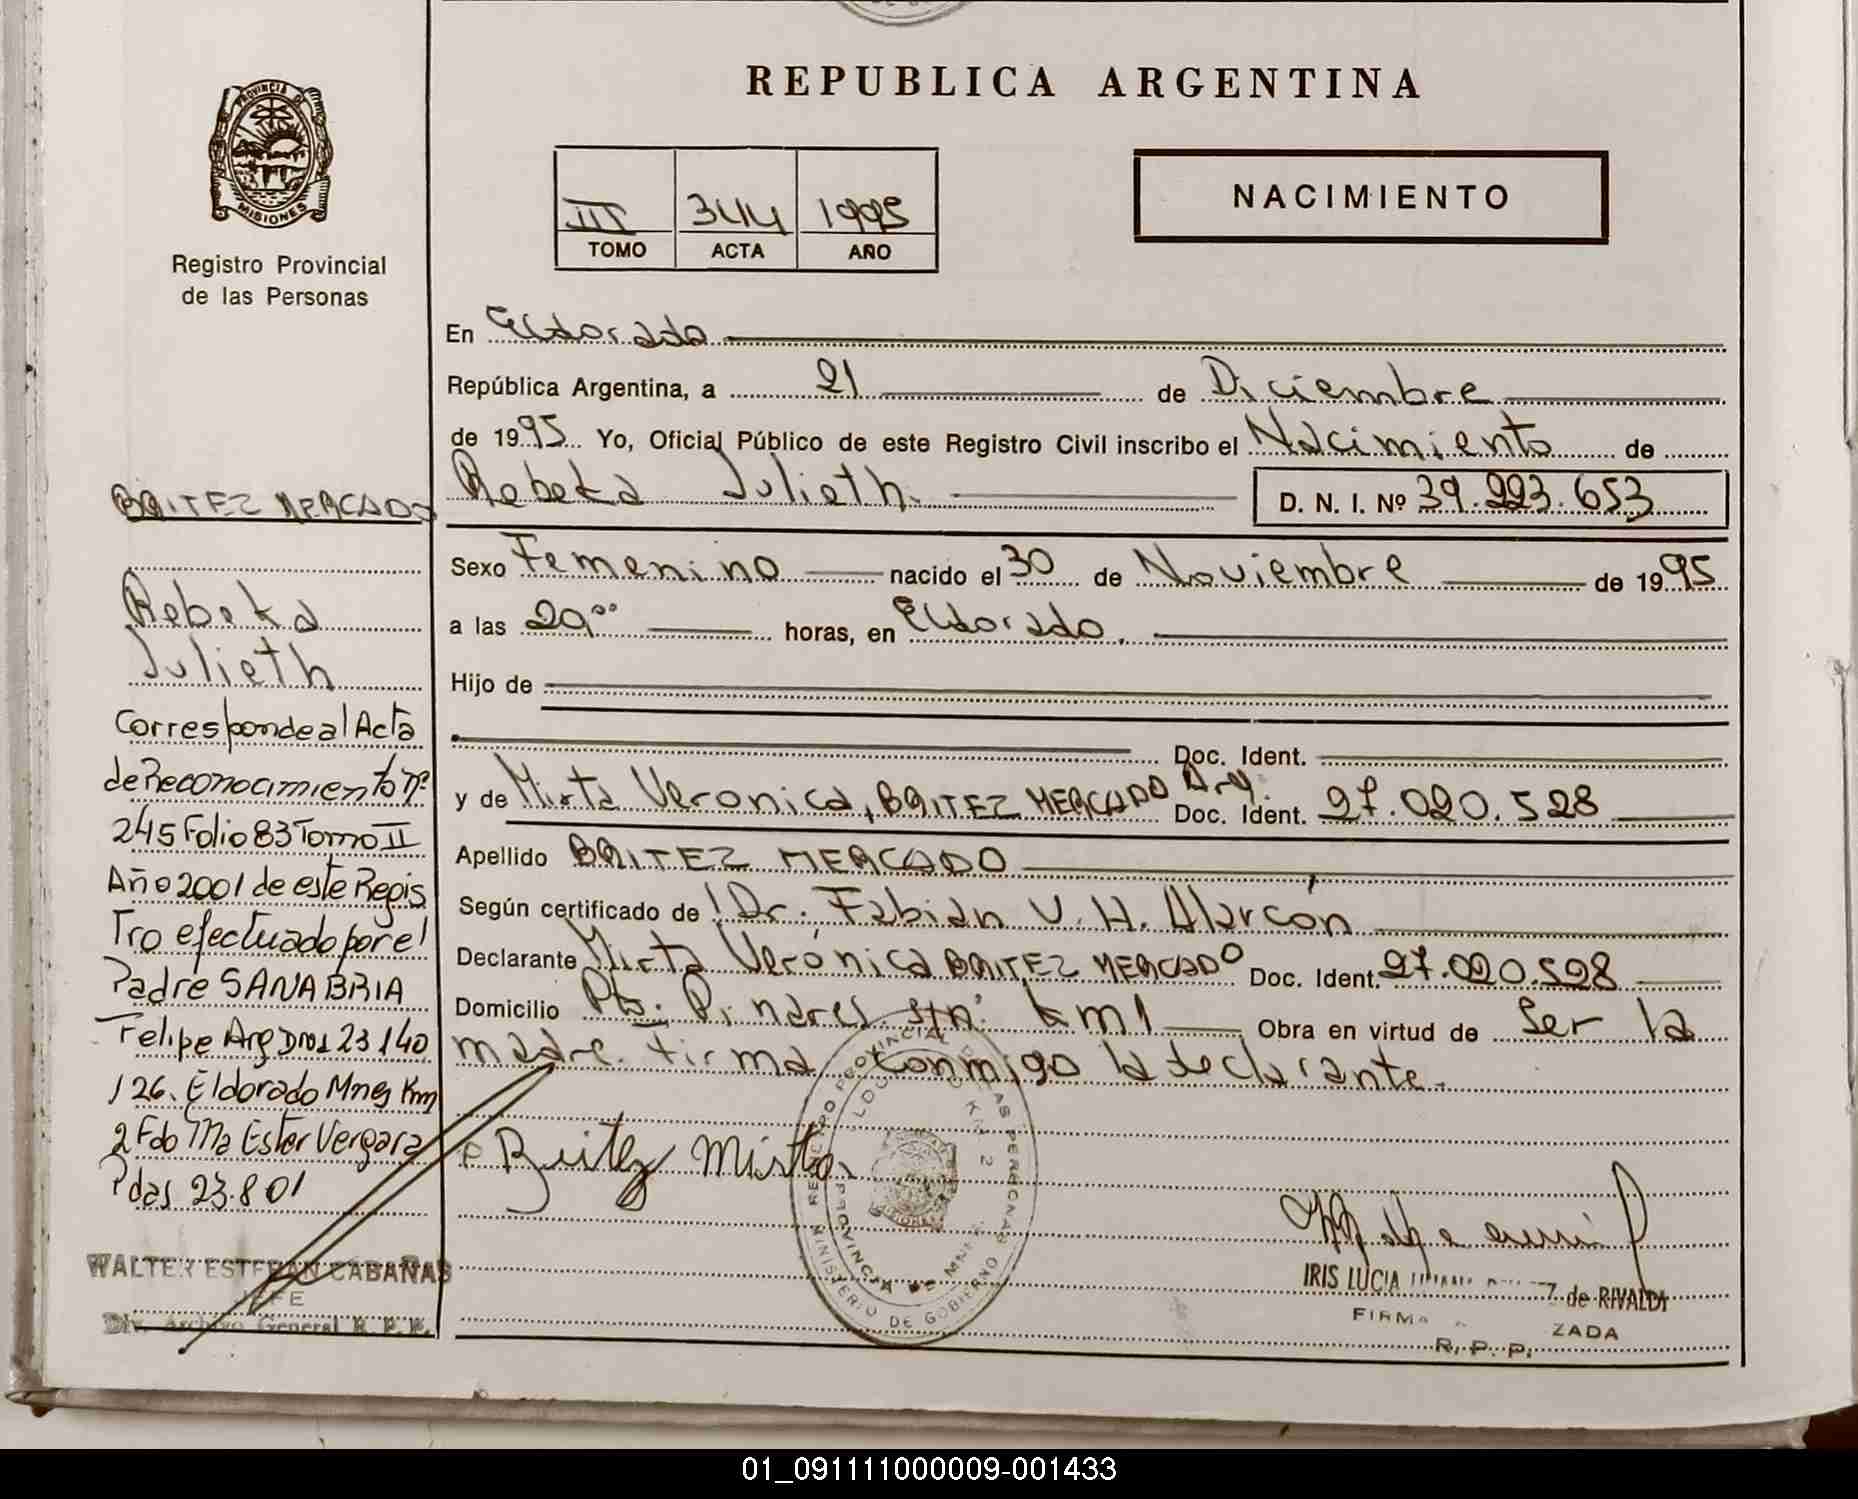 PROVINCIA DE
MISIONES
Registro Provincial
de las Personas
REPUBLICA ARGENTINA
III 344 1995
TOMO ACTA AÑO
NACIMIENTO
En Eldorado
República Argentina, a 21 de Diciembre
de 1995 Yo, Oficial Público de este Registro Civil inscribo el Nacimiento de
Rebeka Julieth. D. N. I. Nº 39.223.653
Sexo Femenino nacido el 30 de Noviembre de 1995
a las 20ºº horas, en Eldorado.
Hijo de
Doc. Ident.
y de Mirta Veronica, BRITEZ MERCADO Doc. Ident. Arg. 27.020.528
Apellido BRITEZ MERCADO
Según certificado de Dr. Fabián V. H. Alarcón
Declarante Mirta Verónica BRITEZ MERCADO Doc. Ident. 27.020.528
Domicilio Pto. Pinares s/nº km 1 Obra en virtud de Ser la
madre. firma conmigo la declarante.
Britez Mirta
REGISTRO PROVINCIAL DE LAS PERSONAS
MINISTERIO DE GOBIERNO
PROVINCIA DE MNES
KM 2
IRIS LUCIA de RIVALDI
R. P. P.
BRITEZ MERCADO
Rebeka
Julieth
Corresponde al Acta
de Reconocimiento nº
245 Folio 83 Tomo II
Año 2001 de este Regis
Tro efectuado por el
Padre SANABRIA
Felipe Arg DNI 23 140
126. Eldorado Mnes Km
2 Fdo Ma Ester Vergara
Pdas 23.8 01
WALTER ESTEBAN CABAÑAS
JEFE
Div. Archivo General R. P. P.
01_091111000009-001433